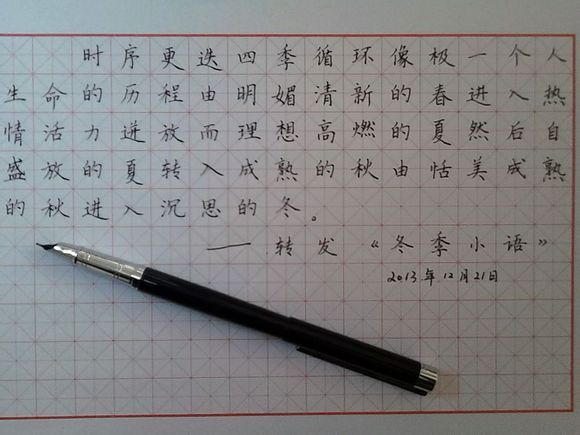 时序更迭四季循环像极一个人
生命的历程由明媚清新的春进入热
情活力迸放而理想高燃的夏然后自
盛放的夏转入成熟的秋由恬美成熟
的秋进入沉思的冬。
——转发《冬季小语》
2013年12月21日